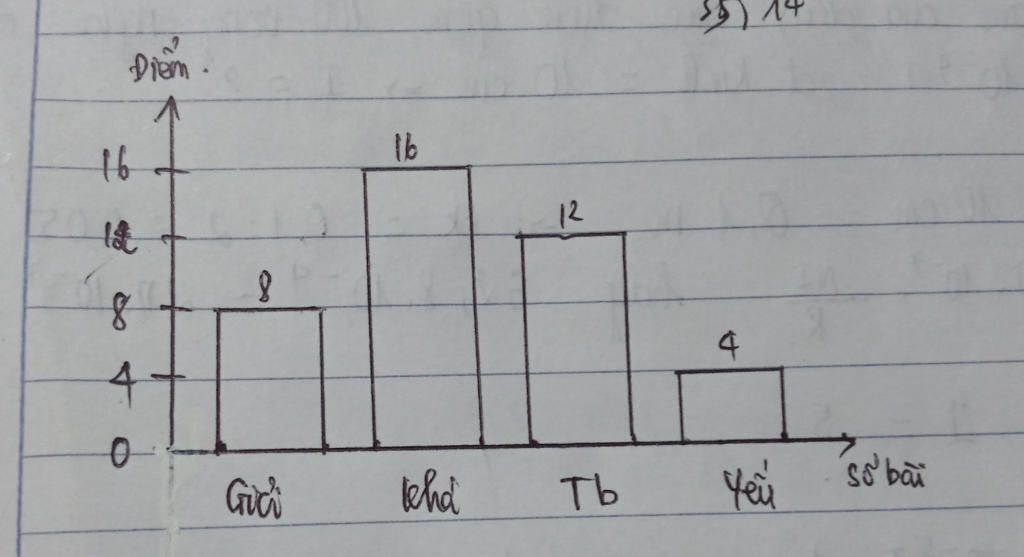 Điểm.
16
16
12
12
8
8
4
4
0
Giỏi Khá Tb Yếu số bài